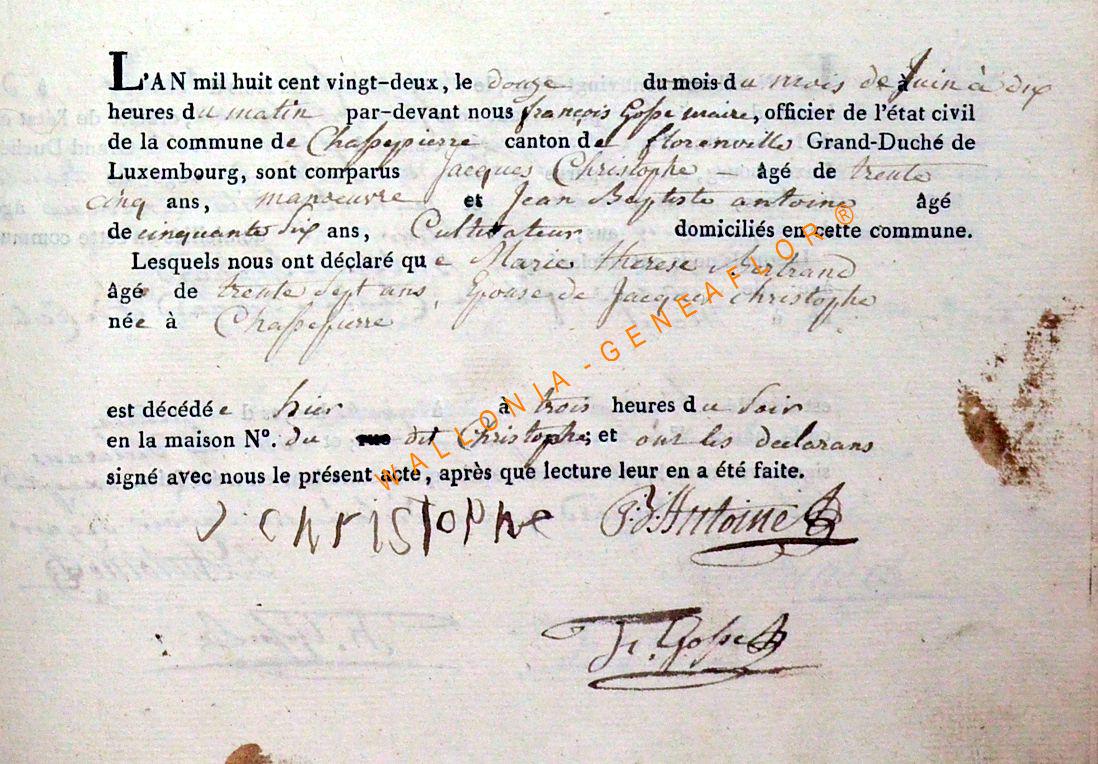 L'AN mil huit cent vingt-deux, le douze du mois du mois de Juin à dix
heures du matin par-devant nous françois Gosse maire, officier de l'état civil
de la commune de Chassepierre canton de florenville Grand-Duché de
Luxembourg, sont comparus Jacques Christophe âgé de trente
cinq ans, manoeuvre et Jean Baptiste antoine âgé
de cinquante six ans, Cultivateur domiciliés en cette commune.
Lesquels nous ont déclaré que Marie therese Bertrand
âgé de trente sept ans, Epouse de Jacques christophe
née à Chassepierre
est décédée hier à trois heures du Soir
en la maison N°. du rue dit Christophe; et ont les declarans
signé avec nous le présent acte, après que lecture leur en a été faite.
J CHRISTOPHE J:B:Antoine
fr. Gosse
WALLONIA - GENEAFLOR ®